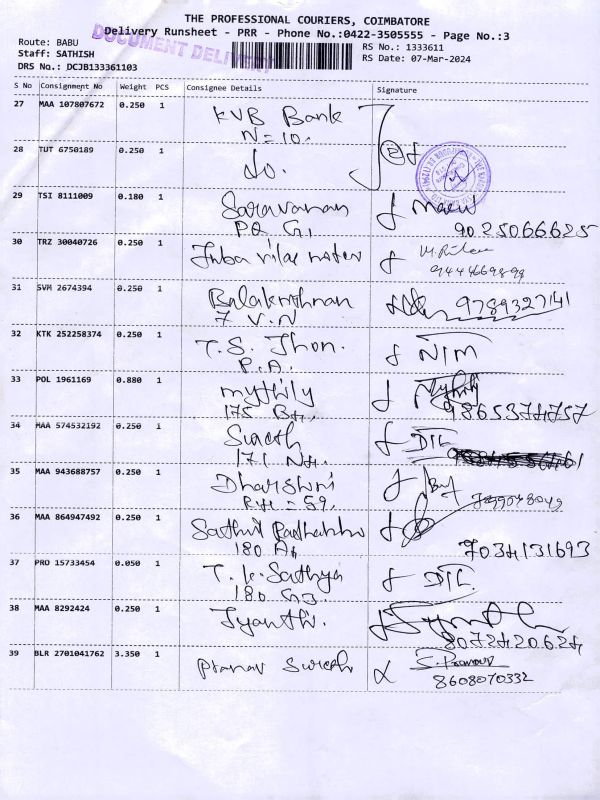 THE PROFESSIONAL COURIERS, COIMBATORE
Delivery Runsheet - PRR - Phone No.:0422-3505555 - Page No.:3
DOCUMENT DELIVERY
Route: BABU
Staff: SATHISH
DRS No.: DCJB133361103
RS No.: 1333611
RS Date: 07-Mar-2024
S No Consignment No Weight PCS Consignee Details Signature
27 MAA 107807672 0.250 1 KVB Bank
N=10.
28 TUT 6750189 0.250 1 do.
29 TSI 8111009 0.180 1 Saravanan
PQ G1 9025066625
30 TRZ 30040726 0.250 1
9444669898
31 SVM 2674394 0.250 1 Balakrishnan 9789327141
7 V.N
32 KTK 252258374 0.250 1 T.S. Jhon. NIM
P.A.
33 POL 1961169 0.880 1 mythily
175 9865374757
34 MAA 574532192 0.250 1 Suresh DIL
171
35 MAA 943688757 0.250 1 Dharshni
= 59.
36 MAA 864947492 0.250 1
180 7034131693
37 PRO 15733454 0.050 1 T.K. Sathya DIL
180 G3
38 MAA 8292424 0.250 1 Jyanthi.
8072420624
39 BLR 2701041762 3.350 1 Pranav Suresh S. Pranav
8608070332